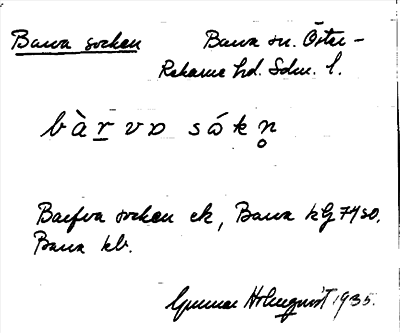 Barva socken Barva sn. Öster-
Rekarne hd. Sdm. l.
bàrva såkn̥
Barfva socken ek, Barva kG 7450.
Barva kb.
Gunnar Holmquist 1935.